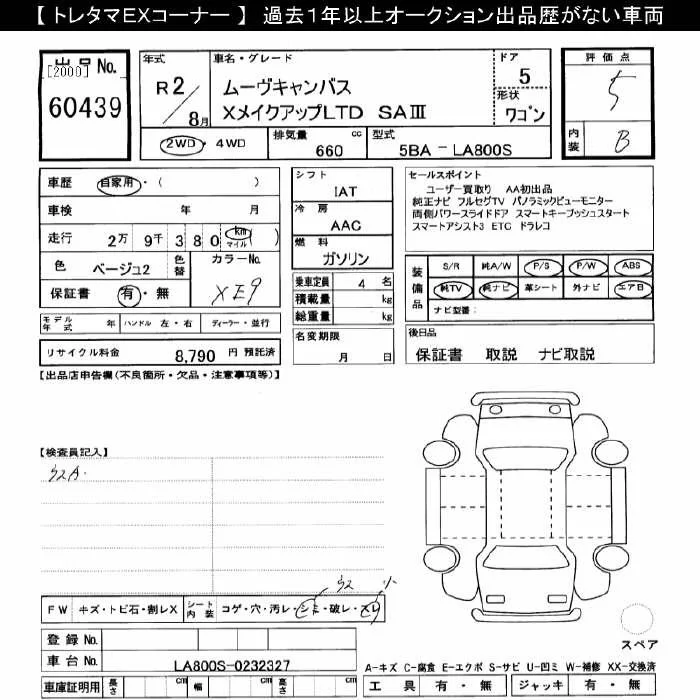 【 トレタマEXコーナー 】 過去1年以上オークション出品歴がない車両
出品No.
[2000]
60439
年式
R2/8月
車名・グレード
ムーヴキャンバス
XメイクアップLTD SAⅢ
ドア
5
形状
ワゴン
評価点
5
内装
B
2WD・4WD
排気量 cc
660
型式
5BA-LA800S
車歴 自家用・( )
車検 年 月
走行 2万 9千 3 8 0 km マイル ( )
色 ベージュ2
色替
カラーNo.
XE9
保証書 有・無
モデル年式 年 ハンドル 左・右 ディーラー・並行
リサイクル料金 8,790 円 預託済
シフト
IAT
冷房
AAC
燃料
ガソリン
乗車定員 4 名
積載量 kg
総重量 kg
名変期限
月 日
セールスポイント
ユーザー買取り AA初出品
純正ナビ フルセグTV パノラミックビューモニター
両側パワースライドドア スマートキープッシュスタート
スマートアシスト3 ETC ドラレコ
装備品
S/R 純A/W P/S P/W ABS
純TV 純ナビ 革シート 外ナビ エアB
ナビ型番:
後日品
保証書 取説 ナビ取説
【出品店申告欄(不良箇所・欠品・注意事項等)】
【検査員記入】
FW キズ・トビ石・割レX
シート内装 コゲ・穴・汚レ・シミ・破レ・スレ
小
登録No.
車台No. LA800S-0232327
車庫証明用 長さ cm 幅 cm 高さ cm
スペア
A-キズ C-腐食 E-エクボ S-サビ U-凹ミ W-補修 XX-交換済
工具 有・無 ジャッキ 有・無